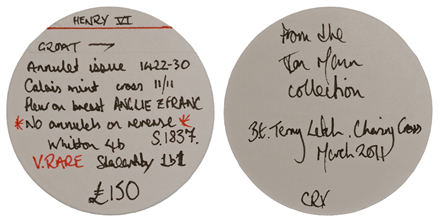 HENRY VI
GROAT →
Annulet issue 1422-30
Calais mint cross 11/11
Fleur on breast ANGLIE Z FRANC
* No annulets on reverse *
Whitton 4b S.1837.
V.RARE 161
£150
From the
Ian Mann
collection
Bt. Terry Leach. Charing Cross
March 2011
CRX